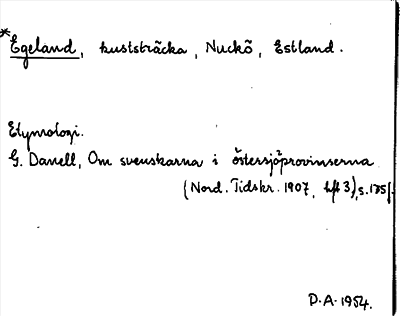 *Egeland, kuststräcka, Nuckö, Estland.
Etymologi.
G. Danell, Om svenskarna i östersjöprovinserna
(Nord. Tidskr. 1907, hft 3), s. 175f.
D.A. 1954.